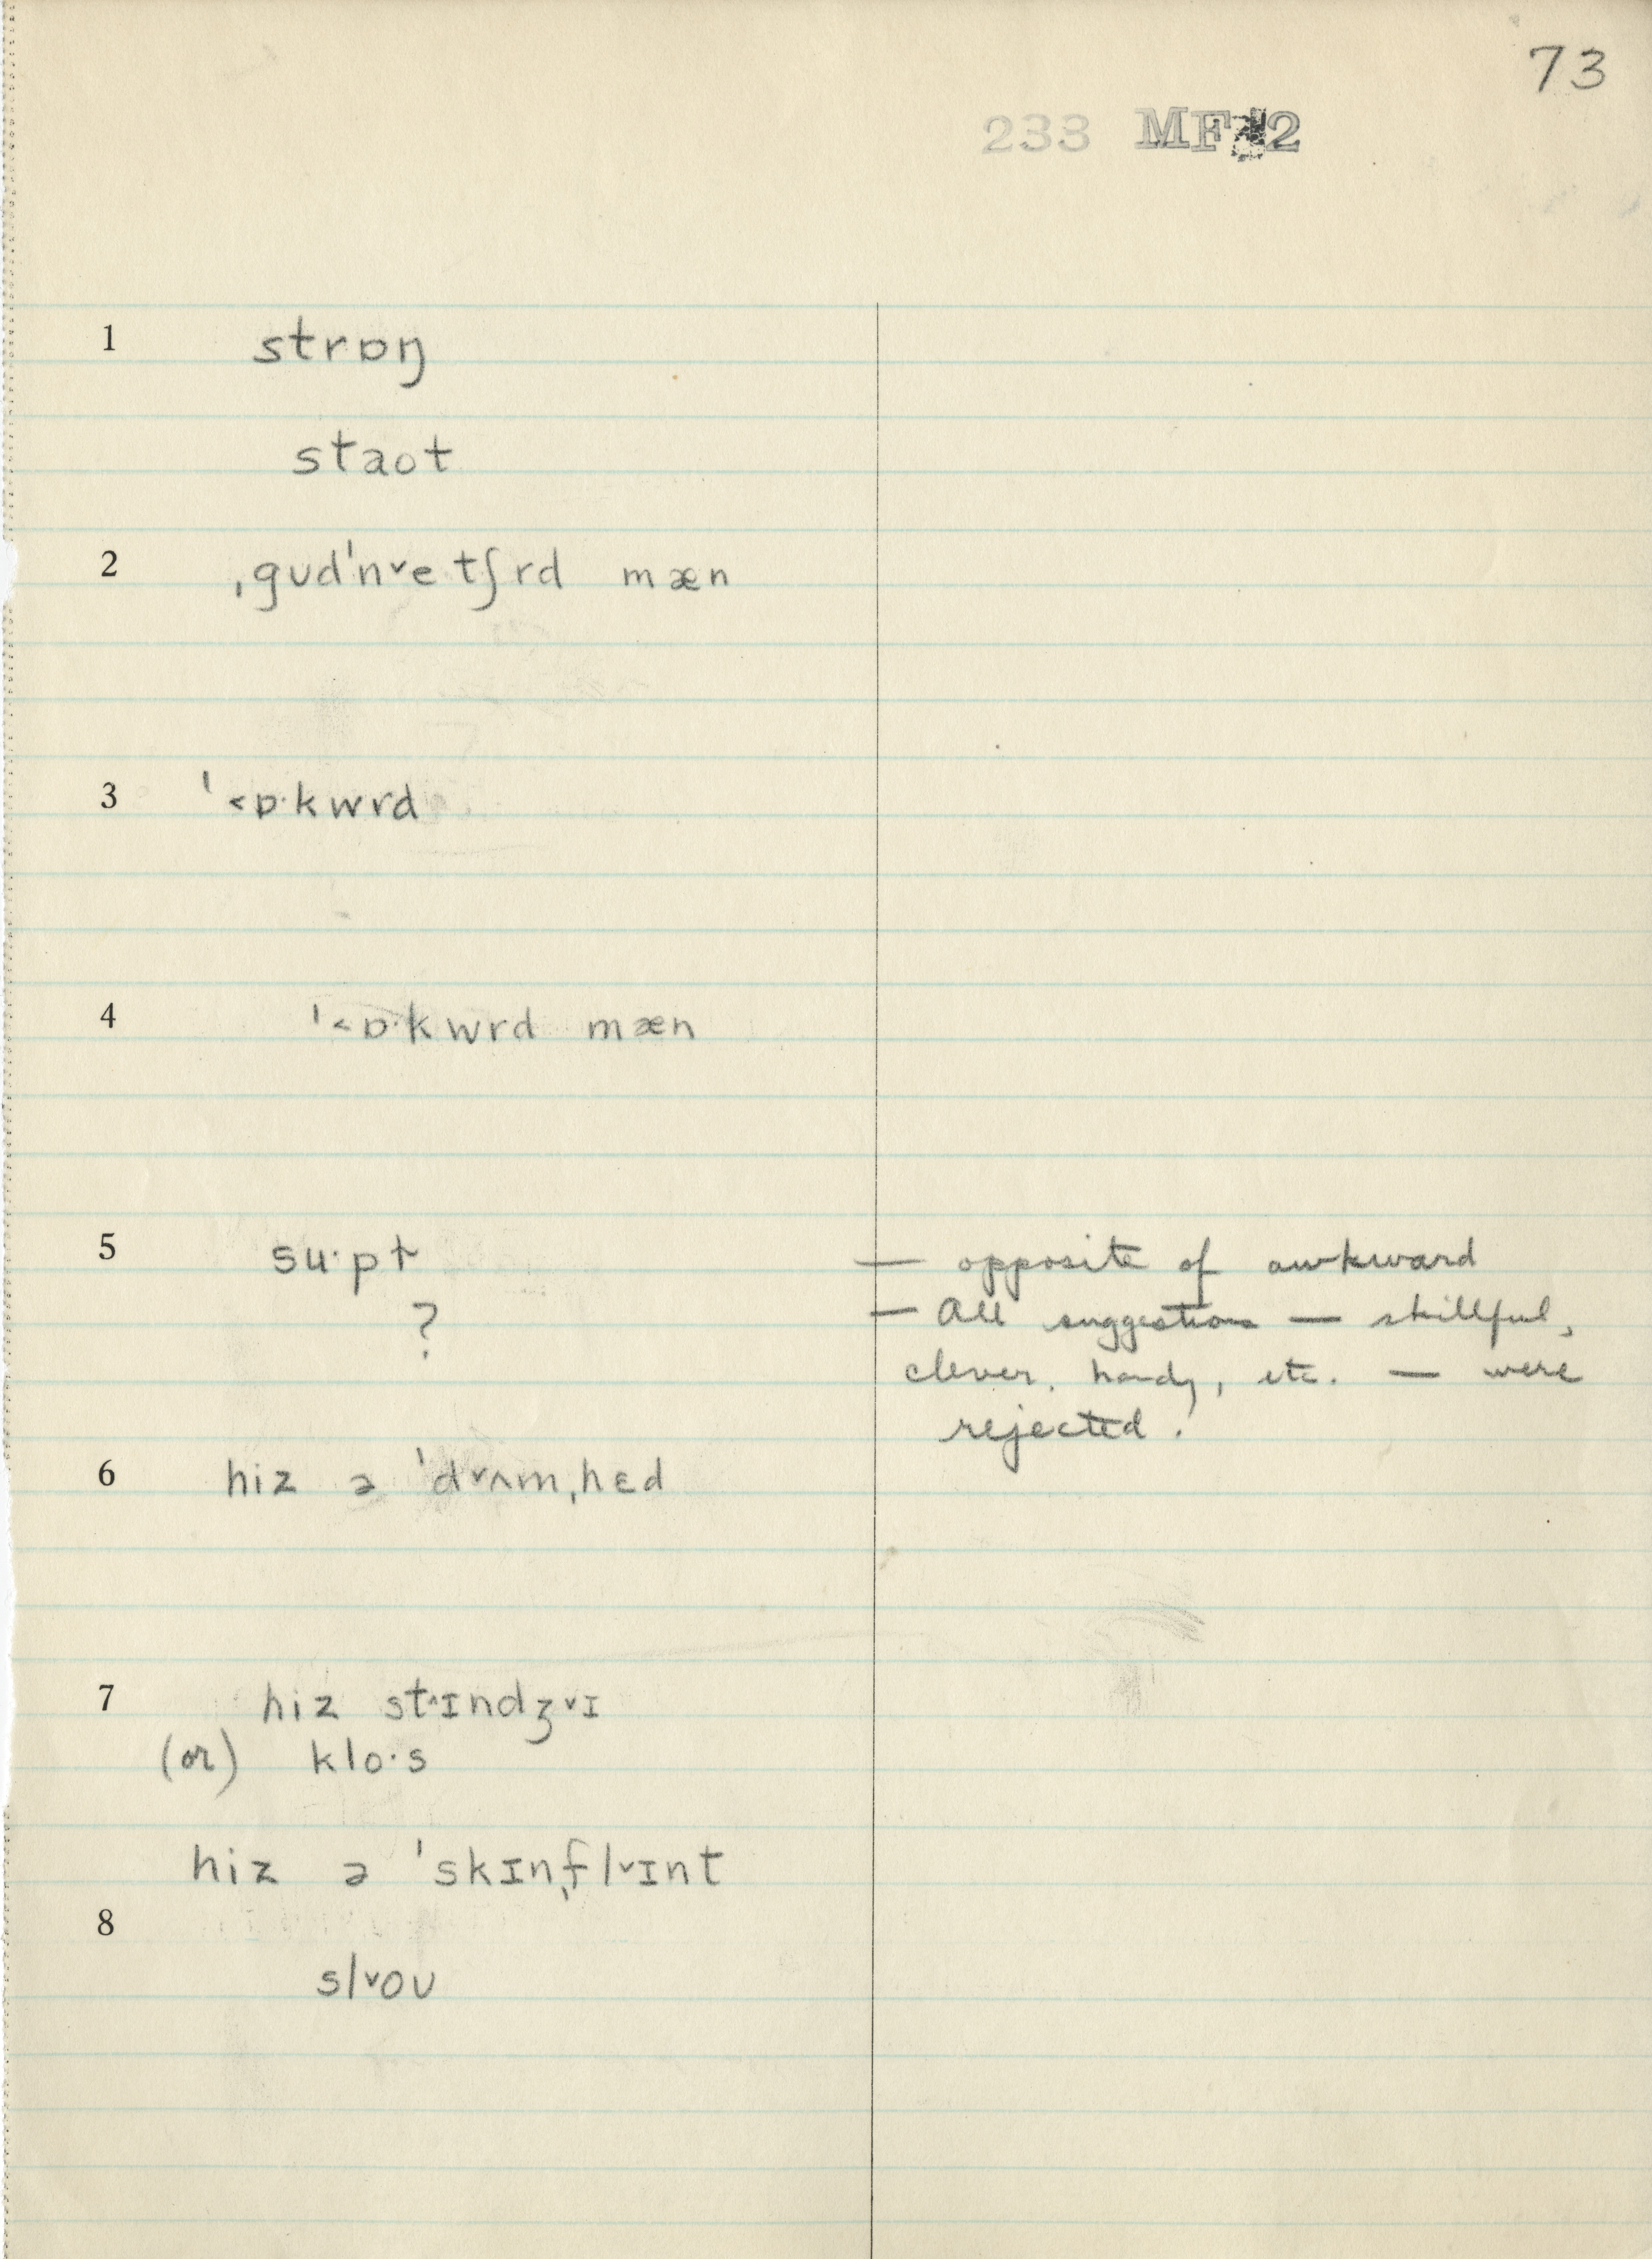 73
233 MF 2
1 strɒŋ
staot
2 ˌgʊdˈn˅etʃrd mæn
3 ˈ˂ɒ·kwrd
4 ˈ˂ɒ·kwrd mæn
5 su·pt — opposite of awkward
? — All suggestions — skillful,
clever, handy, etc. — were
rejected.
6 hiz ə ˈd˅ʌmˌhɛd
7 hiz st˄ɪndʒ˅ɪ
(or) klo·s
hiz ə ˈskɪnˌfl˅ɪnt
8
sl˅oʊ